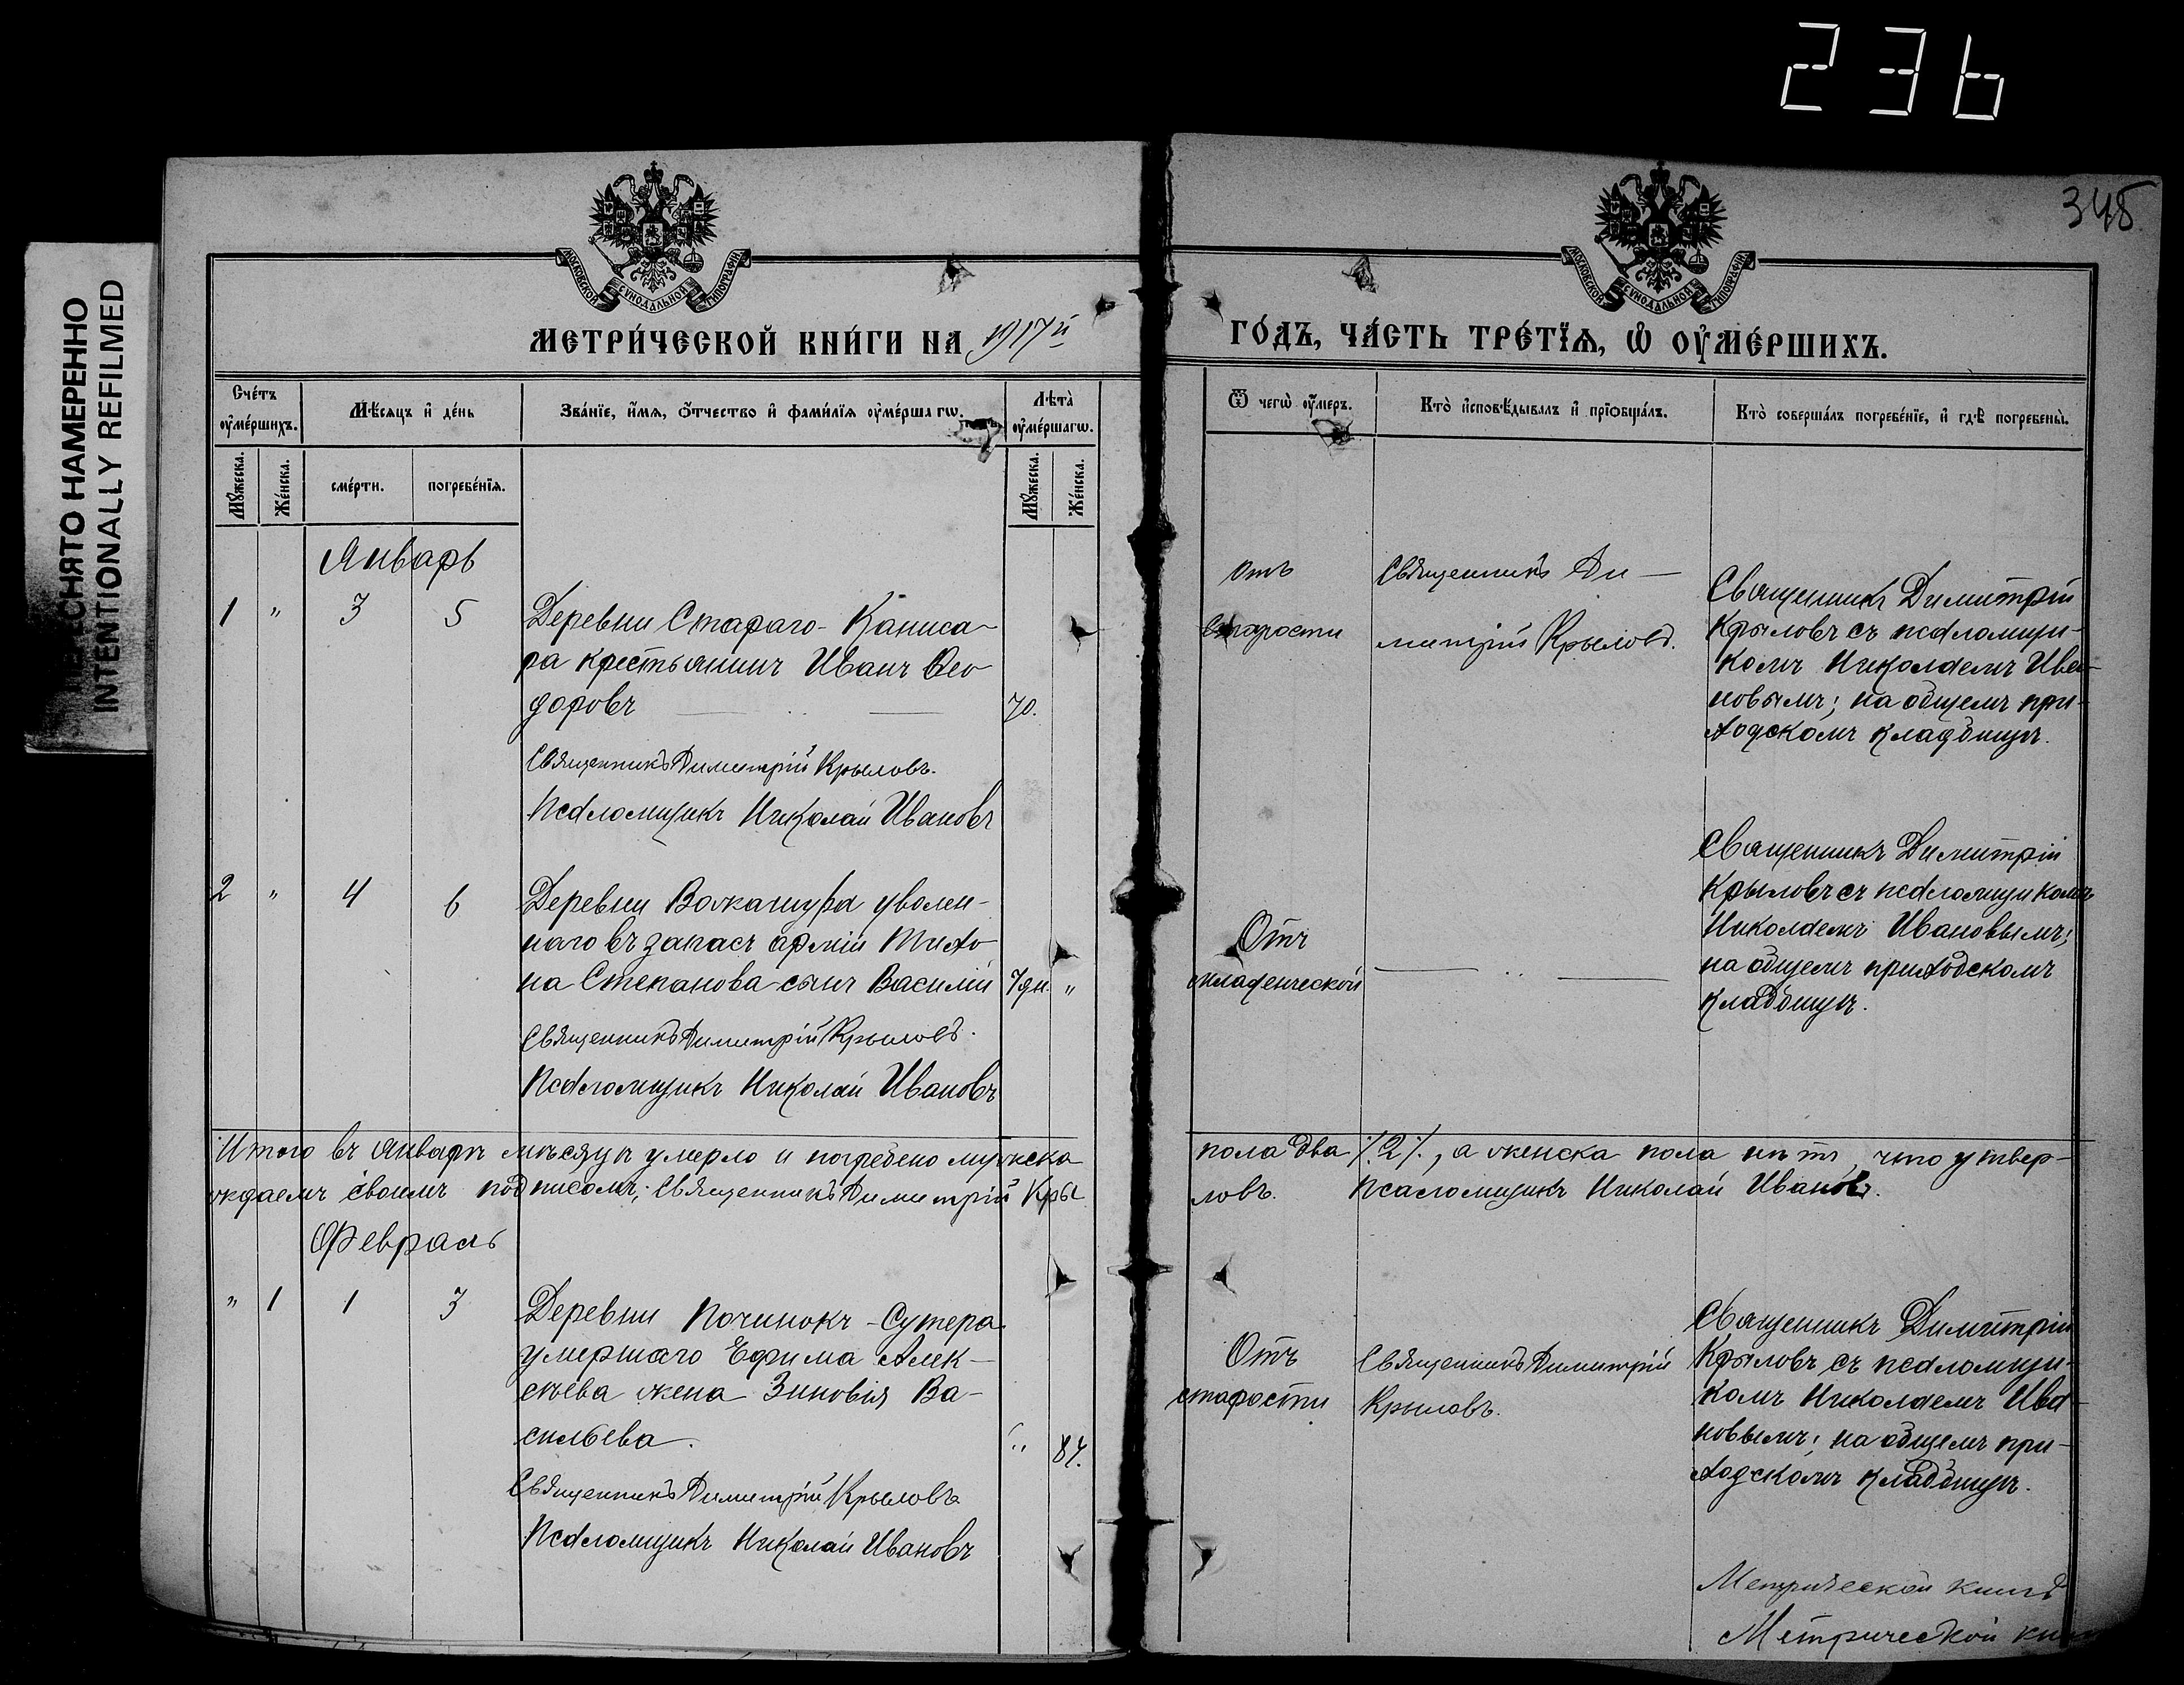 236
348
ПЕРЕСНЯТО НАМЕРЕННО
INTENTIONALLY REFILMED
МОСКОВСКОЙ СѴНОДАЛЬНОЙ ТИПОГРАФІИ
МОСКОВСКОЙ СѴНОДАЛЬНОЙ ТИПОГРАФІИ
МЕТРИ́ЧЕСКОЙ КНИ́ГИ НА 1917й
ГО́ДЪ, ЧА́СТЬ ТРЕ́ТЇѦ, Ѡ҆ ОУ҆МЕ́РШИХЪ.
Сче́тъ оу҆ме́ршихъ.
Мѣ́сяцъ и҆ де́нь
Зва́нїе, и҆́мѧ, ѻ҆́тчество и҆ фами́лїѧ оу҆ме́ршагѡ.
Лѣта̀ оу҆ме́ршагѡ.
Ѿ чегѡ̀ оу҆́меръ.
Кто̀ и҆сповѣ́дывалъ и҆ прїѡбща́лъ.
Кто̀ соверша́лъ погребе́нїе, и҆ гдѣ̀ погребены̀.
Мꙋ́жеска.
Же́нска.
сме́рти.
погребе́нїѧ.
Мꙋ́жеска.
Же́нска.
Январь
1 " 3 5 Деревни Стараго-Каниса-
ра крестьянинъ Иванъ Ѳео
доровъ 70.
Священникъ Димитрій Крыловъ.
Псаломщикъ Николай Ивановъ
отъ
старости
Священникъ Ди-
митрій Крыловъ.
Священникъ Димитрій
Крыловъ съ псаломщи-
комъ Николаемъ Ива-
новымъ; на общемъ при-
ходскомъ кладбищѣ.
2 " 4 6 Деревни уволен-
наго въ запасъ арміи Тихо
на Степанова сынъ Василій 7 дн. "
Священникъ Димитрій Крыловъ.
Псаломщикъ Николай Ивановъ
Отъ
младенческой
Священникъ Димитрій
Крыловъ съ псаломщикомъ
Николаемъ Ивановымъ;
на общемъ приходскомъ
кладбищѣ.
Итого въ Январѣ мѣсяцѣ умерло и погребено мужеска
пола два ./2/., а женска пола нѣтъ, что утвер-
ждаемъ своимъ подписомъ; Священникъ Димитрій Кры
ловъ. Псаломщикъ Николай Ивановъ.
Февраль
" 1 1 3 Деревни Починокъ-Сутера
умершаго Ефима Алек-
сѣева жена Зиновія Ва-
сильева. " 84.
Священникъ Димитрій Крыловъ
Псаломщикъ Николай Ивановъ
Отъ
старости
Священникъ Димитрій
Крыловъ.
Священникъ Димитрій
Крыловъ съ псаломщи-
комъ Николаемъ Ива-
новымъ; на общемъ при-
ходскомъ кладбищѣ.
Метрической книгѣ
Метрической